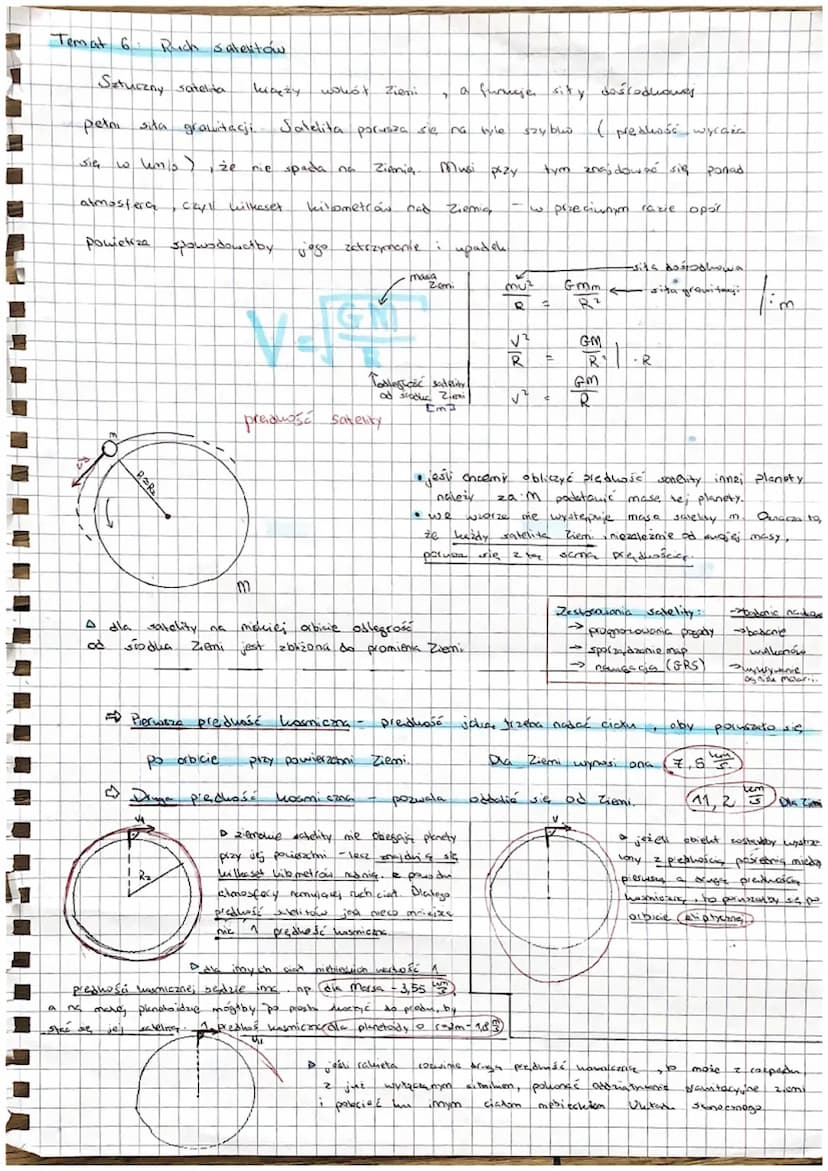 Temat 6: Ruch satelitów
Sztuczny satelita krąży wokół Ziemi, a funkcję siły dośrodkowej
pełni siła grawitacji. Satelita porusza się na tyle szybko (prędkość wyraża
się w km/s), że nie spada na Ziemię. Musi przy tym znajdować się ponad
atmosferą, czyli kilkaset kilometrów nad Ziemią - w przeciwnym razie opór
powietrza spowodowałby jego zatrzymanie i upadek.
masa Ziemi
V = √(GM/R)
odległość satelity
od środka Ziemi
[m]
prędkość satelity
siła dośrodkowa
mv²/R = GMm/R² ← siła grawitacji /:m
V²/R = GM/R² | · R
V² = GM/R
m
V
R≈Rz
M
• jeśli chcemy obliczyć prędkość satelity innej planety
należy za M podstawić masę tej planety.
• we wzorze nie występuje masa satelity m. Oznacza to,
że każdy satelita Ziemi, niezależnie od swojej masy,
porusza się z tą samą prędkością.
△ dla satelity na niskiej orbicie odległość
od środka Ziemi jest zbliżona do promienia Ziemi.
Zastosowania satelity:
→ prognozowania pogody
→ sporządzanie map
→ nawigacja (GPS)
→ badanie
→ badanie
wulkanów
→ wykrywanie
⇒ Pierwsza prędkość kosmiczna - prędkość jaką trzeba nadać ciału, aby poruszało się
po orbicie przy powierzchni Ziemi. Dla Ziemi wynosi ona 7,9 km/s.
⇒ Druga prędkość kosmiczna - pozwala oddalić się od Ziemi. 11,2 km/s Dla Ziemi
V₁
Rz
▷ ziemskie satelity nie obiegają planety
przy jej powierzchni - lecz znajdują się
kilkaset kilometrów nad nią, z powodu
atmosfery hamującej ruch ciał. Dlatego
prędkość satelitów jest nieco mniejsza
niż 1 prędkość kosmiczna.
V
▷ jeżeli obiekt zostałby wystrze
lony z prędkością pośrednią między
pierwszą a drugą prędkością
kosmiczną, to poruszałby się po
orbicie eliptycznej
▷ dla innych ciał niebieskich wartość 1
prędkości kosmicznej będzie inna, np. dla Marsa - 3,55 km/s,
a na małej planetoidzie mógłby po prostu skoczyć do przodu, by
stać się jej satelitą. 1 prędkość kosmiczna dla planetoidy o r=2m - 1,8 m/s
V₂
▷ jeśli rakieta rozwinie drugą prędkość kosmiczną, to może z rozpędu,
z już wyłączonym silnikiem, pokonać oddziaływanie grawitacyjne Ziemi
i polecieć ku innym ciałom niebieskim Układu Słonecznego